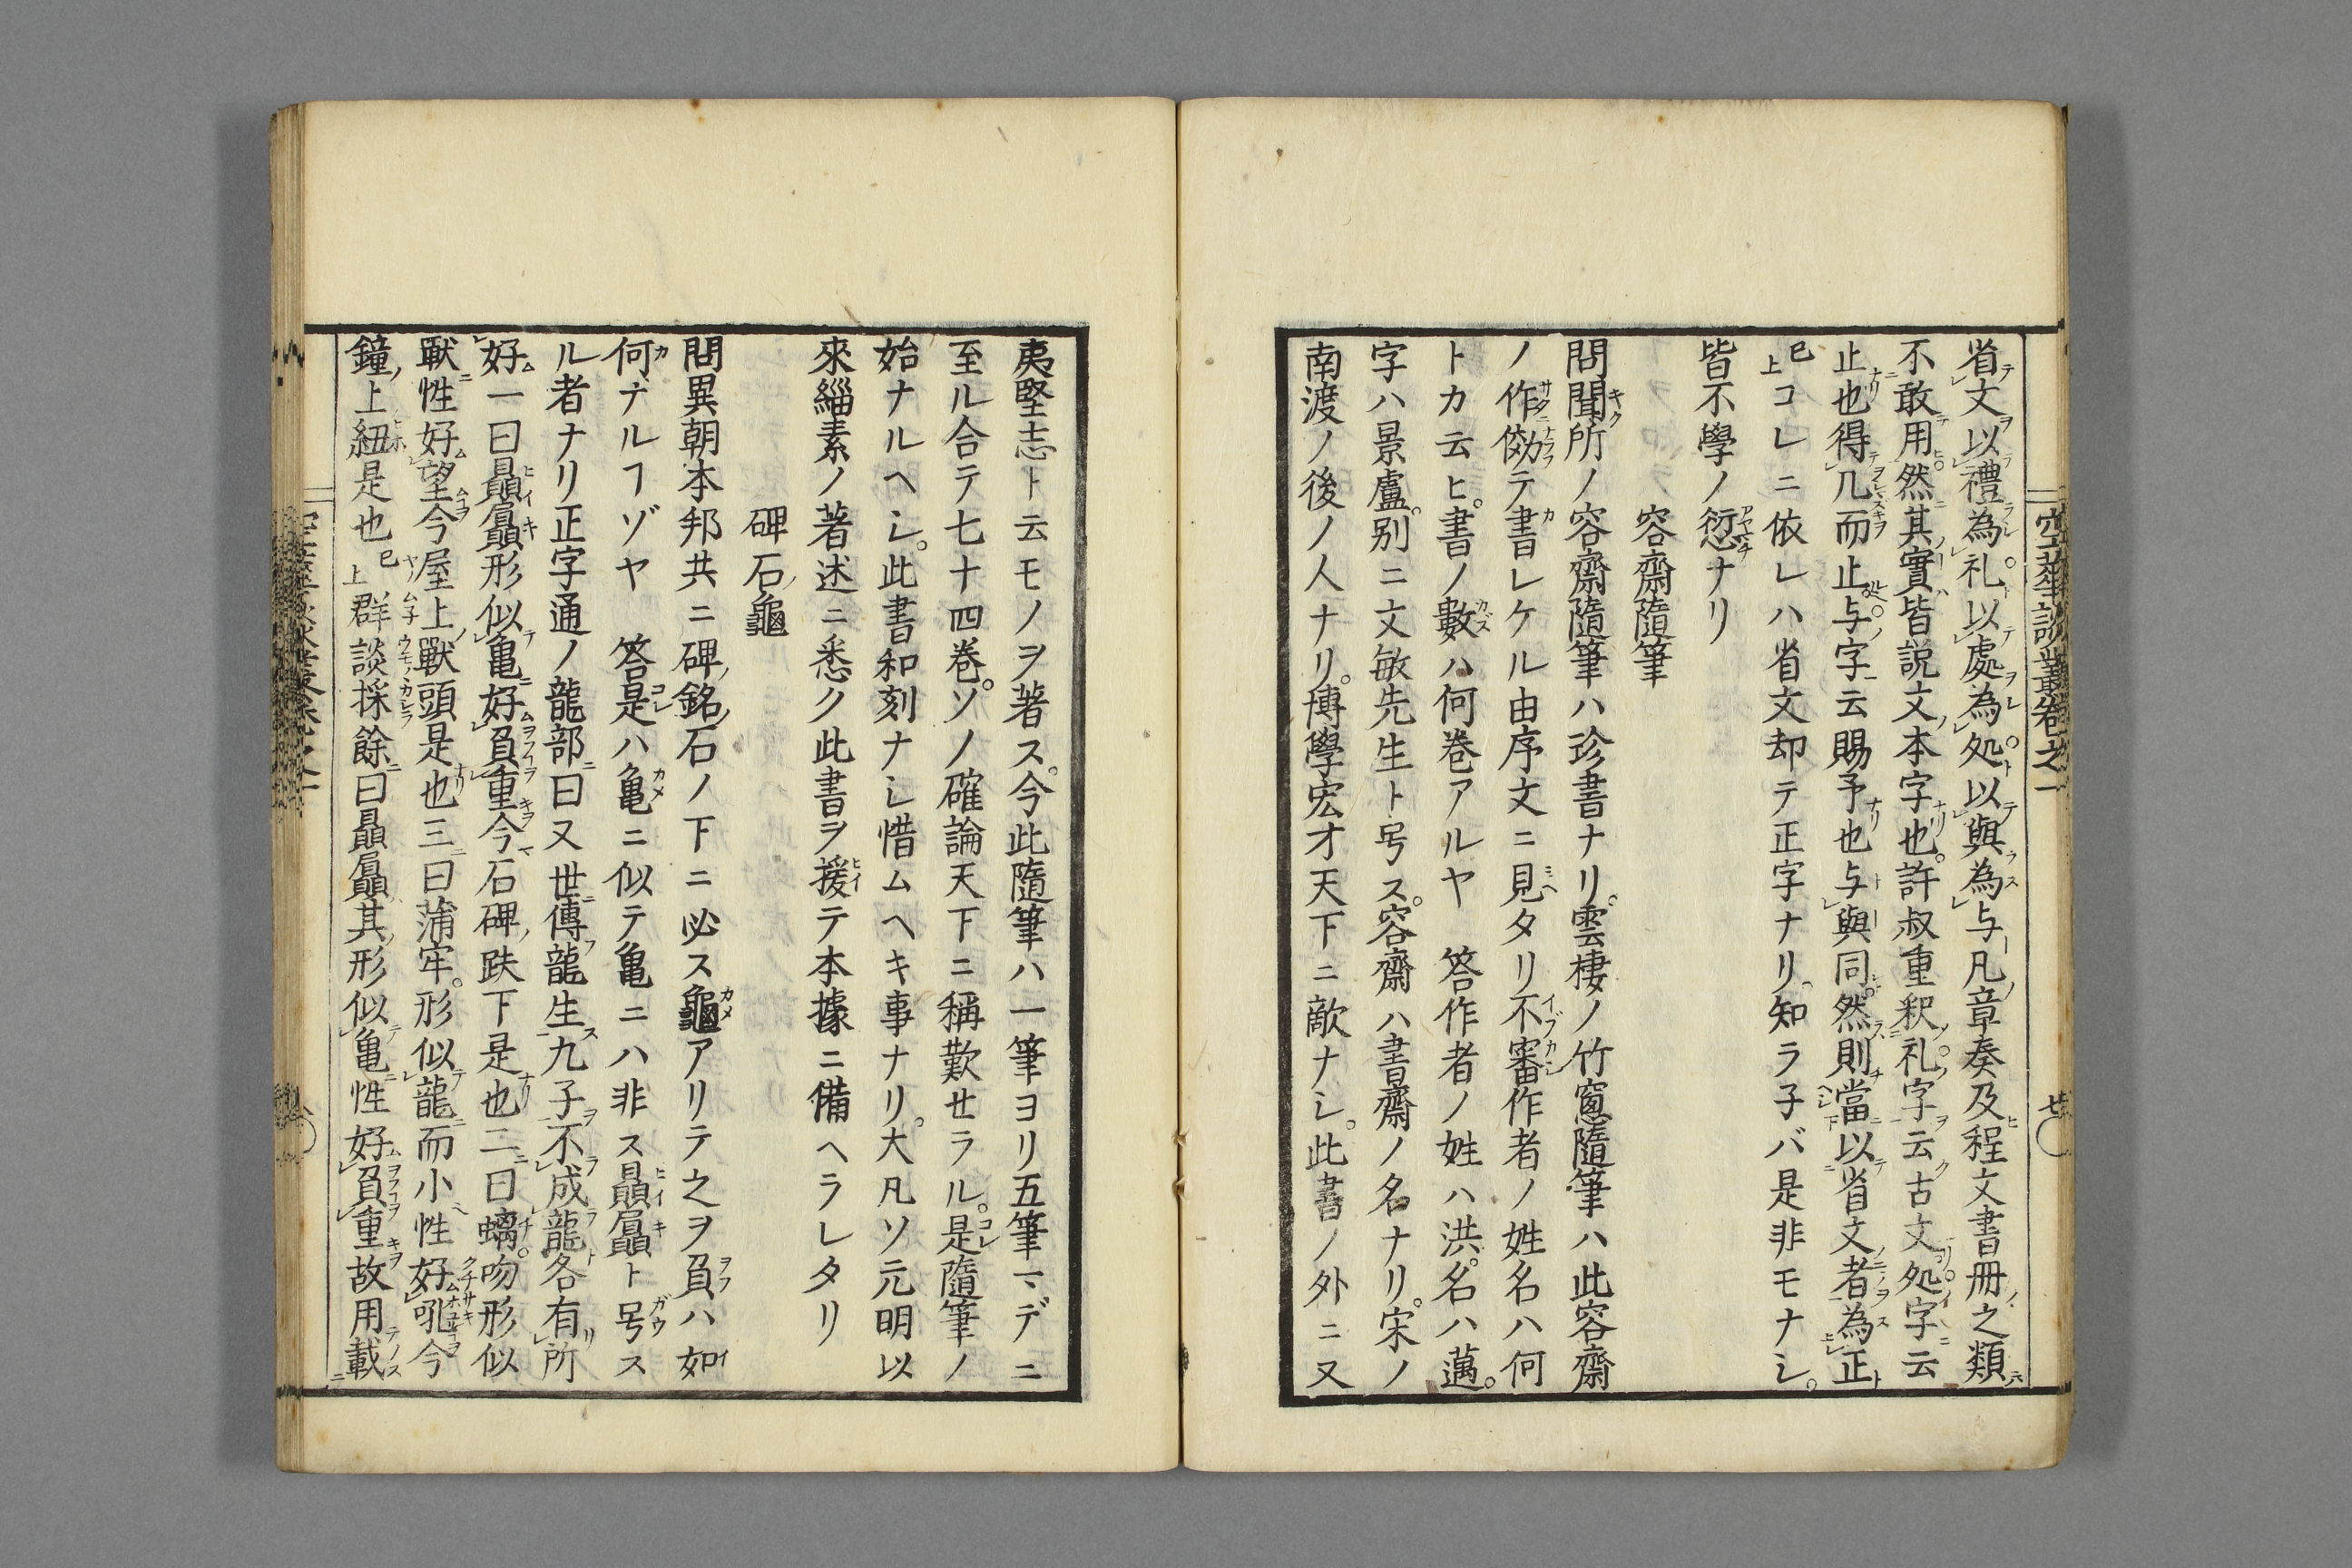 空華談叢卷之一
省文以禮為礼以處為処以與為与凡章奏及程文書冊之類
不敢用然其實皆説文本字也許叔重釈礼字云古文処字云
止也得几而止与字云賜予也与與同然則當以省文者為正
已上コレニ依レハ省文却テ正字ナリ知ラ子バ是非モナシ
皆不學ノ愆ナリ
容齋隨筆
問聞所ノ容齋隨筆ハ珍書ナリ雲棲ノ竹窓隨筆ハ此容齋
ノ作傚テ書レケル由序文ニ見タリ不審作者ノ姓名ハ何
トカ云ヒ書ノ數ハ何卷アルヤ 答作者ノ姓ハ洪名ハ邁
字ハ景盧別ニ文敏先生ト号ス容齋ハ書齋ノ名ナリ宋ノ
南渡ノ後ノ人ナリ博學宏才天下ニ敵ナシ此書ノ外ニ又
夷堅志ト云モノヲ著ス今此隨筆ハ一筆ヨリ五筆マデニ
至ル合テ七十四卷ソノ確論天下ニ稱歎セラル是隨筆ノ
始ナルヘシ此書和刻ナシ惜ムヘキ事ナリ大凡ソ元明以
來緇素ノ著述ニ悉ク此書ヲ援テ本據ニ備ヘラレタリ
碑石ノ龜
問異朝本邦共ニ碑ノ銘ノ石ノ下ニ必ス龜アリテ之ヲ負ハ如
何ナルヿゾヤ 答是ハ亀ニ似テ亀ニハ非ス贔屭ト号ス
ル者ナリ正字通ノ龍部ニ曰又世傳龍生九子不成龍各有所
好一曰贔屭形似亀好負重今石碑趺下是也二曰螭吻形似
獸性好望今屋上獸頭是也三曰蒲牢形似龍而小性好吼今
鐘上紐是也已上群談採餘曰贔屭其形似亀性好負重故用載